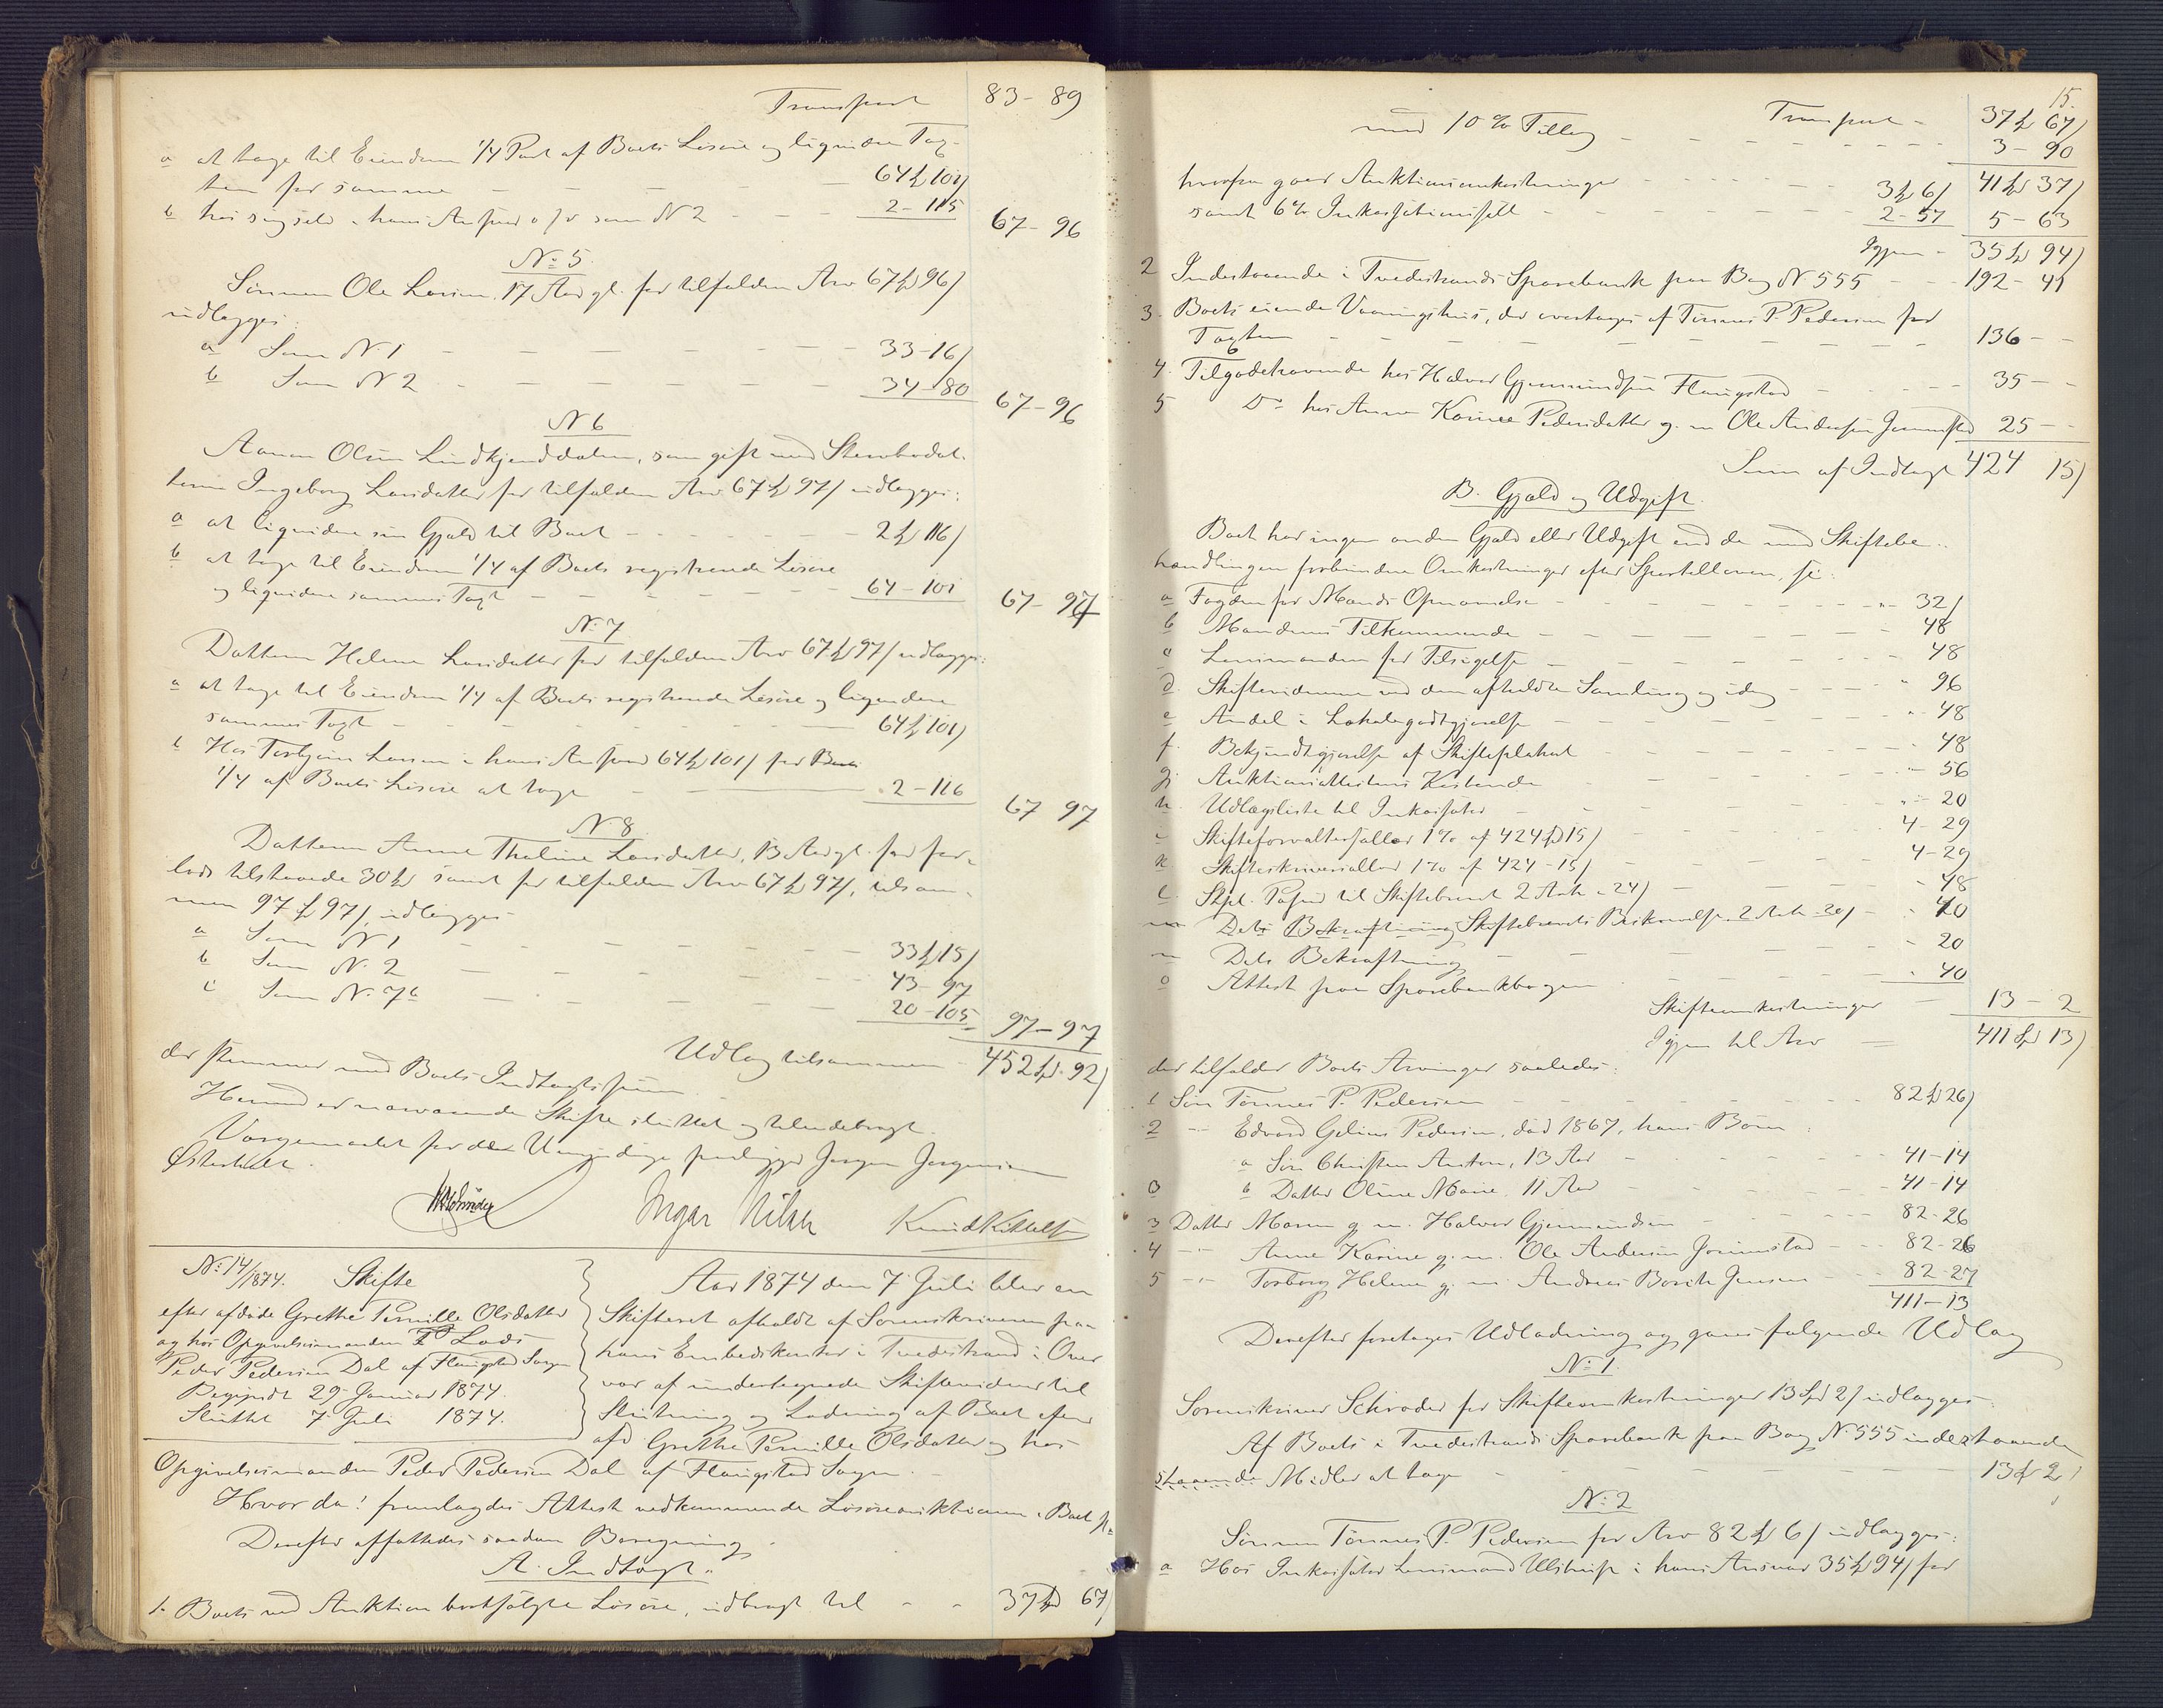 Transport 83 - 89
a at tage til Eiendom 1/4 Part af Boets Løsøre og liqvidere Tax-
ten for samme — — — 64 £ 101/
b hos sig selv i hans Ansvar o/v som N 2 — — 2 - 115 67 - 96
No 5.
Sønnen Ole Larsen, 17 Aar gl. for tilfalden Arv 67 £ 96/
udlægges:
a Som N. 1 — — — 33 - 16/
b Som N 2 — — — 34 - 80 67 - 96
N 6
Aanon Olsen Lindkjenddalen, som gift med Stervbodat-
teren Ingeborg Larsdatter for tilfalden Arv 67 £ 97/ udlægges:
a at liqvidere sin Gjæld til Boet — — — 2 £ 116/
b at tage til Eiendom 1/4 af Boets registrerede Løsøre
og liqvidere sammes Taxt — — — 64 - 101 67 - 97
No 7
Datteren Helene Larsdatter for tilfalden Arv 67 £ 97/ udlægges:
a at tage til Eiendom 1/4 af Boets registrerede Løsøre og liqvidere
sammes Taxt — — — 64 £ 101/
b Hos Torbjørn Larsen i hans Ansvar 64 £ 101/ for
1/4 af Boets Løsøre at tage — — 2 - 116 67 97
N. 8
Datteren Anne Thaline Larsdatter, 13 Aar gl. for for-
lods tilstaaede 30 £ samt for tilfalden Arv 67 £ 97/, tilsam-
men 97 £ 97/, udlægges
a Som N. 1 — — — 33 £ 15/
b Som N. 2 — — — 43 - 97
c Som N. 7b — — — 20 - 105 97 - 97
Udlæg tilsammen - 452 £ 92/
der stemmer med Boets Indtægtssum.
Hermed er nærværende Skifte sluttet og tilendebragt.
Værgemaalet for de Umyndige paaligger Jørgen Jørgensen
Østerholt.
Schrøder Ingar Nilsen Knud Kittelsen
No 14/1874. Skifte
efter afdøde Grethe Pernille Olsdatter
og hos Opgivelsesmanden Lods
Peder Pedersen Dal af Flangstad Sogn
Begyndt 29 Januar 1874.
Sluttet 7 Juli 1874.
Aar 1874 den 7 Juli blev en
Skifteret afholdt af Sorenskriveren paa
hans Embedskontor i Tvedestrand i Over
vær af undertegnede Skiftevidner til
Slutning og Lodning af Boet efter
afd Grethe Pernille Olsdatter og hos
Opgivelsesmanden Peder Pedersen Dal af Flangstad Sogn.
Hvor da: fremlagdes Attest vedkommende Løsøreauktionen i Boet
Derefter affattedes saadan Beregning.
A. Indtægt.
1. Boets ved Auktion bortsolgte Løsøre, udbragt til - - 37 £ 67/
15.
Transport - 37 £ 67/
med 10 % Tillæg — — — 3 - 90
41 £ 37/
hvorfra gaar Auktionsomkostninger — — 3 £ 6/
samt 6 % Inkassationssall — — 2 - 57 5 - 63
Igjen - 35 £ 94/
2 Indestaaende i Tvedestrands Sparebank paa Bog N 555 — — 192 - 41
3. Boets eiende Vaaningshus, der overtages af Tønnes P. Pedersen for
Taxten — — — 136 - -
4. Tilgodehavende hos Halvor Gjermundsen Flangstad — — 35 - -
5 Do hos Anne Karine Pedersdatter g. m Ole Andersen 25 - -
Sum af Indtægt 424 15/
B. Gjæld og Udgift.
Boet har ingen anden Gjæld eller Udgift end de med Skiftebe-
handlingen forbundne Omkostninger efter Sportelloven, s:
a Fogden for Mænds Opnævnelse — — — 32/
b Mændenes Tilkommende — — — 48
c Lensmanden for Tilsigelse — — — 48
d. Skiftevidnerne ved den afholdte Samling og idag — — 96
e Andel i Lokalegodtgjørelse — — — 48
f. Bekjendtgjørelse af Skifteplakat — — — 48
g. Auktionsattestens Kostende — — — 56
h. Udlægsliste til Inkassator — — — 20
i Skifteforvaltersallar 1 % af 424 £ 15/ — — 4 - 29
k Skifteskriversallar 1 % af 424 - 15/ — — 4 - 29
l. Stpl. Papir til Skiftebrevet 2 Ark a 24/ — — 48
m Dets Skiftebrevets Beskrivelse 2 Ark a 20/ — 40
n Dets Bekræftning — — — 20
o Attest paa Sparebankbogen — — — 40
Skifteomkostninger — 13 - 2
Igjen til Arv — 411 £ 13/
der tilfalder Boets Arvinger saaledes:
1 Søn Tønnes P. Pedersen — — — 82 £ 26/
2 — Edvard Gelius Pedersen, død 1867, hans Børn:
a Søn Christen Anton, 13 Aar — — 41 - 14
b Datter Oline Marie, 11 Aar — — 41 - 14
3 Datter Maren g. m. Halvor Gjermundsen — — 82 - 26
4 -"- Anne Karine g. m. Ole Andersen — — 82 - 26
5 -"- Torborg Helene g. m. Andreas Jensen — — 82 - 27
411 - 13
Derefter foretages Udlodning og gives følgende Udlæg
No 1
Sorenskriver Schrøder for Skifteomkostninger 13 £ 2/ udlægges
Af Boets i Tvedestrands Sparebank paa Bog N. 555 indestaaende
Midler at tage — — — 13 £ 2/
No 2
Sønnen Tønnes P. Pedersen for Arv 82 £ 6/ udlægges:
a Hos Inkassator Lensmand Ulstrup i hans Ansvar 35 £ 94/ for